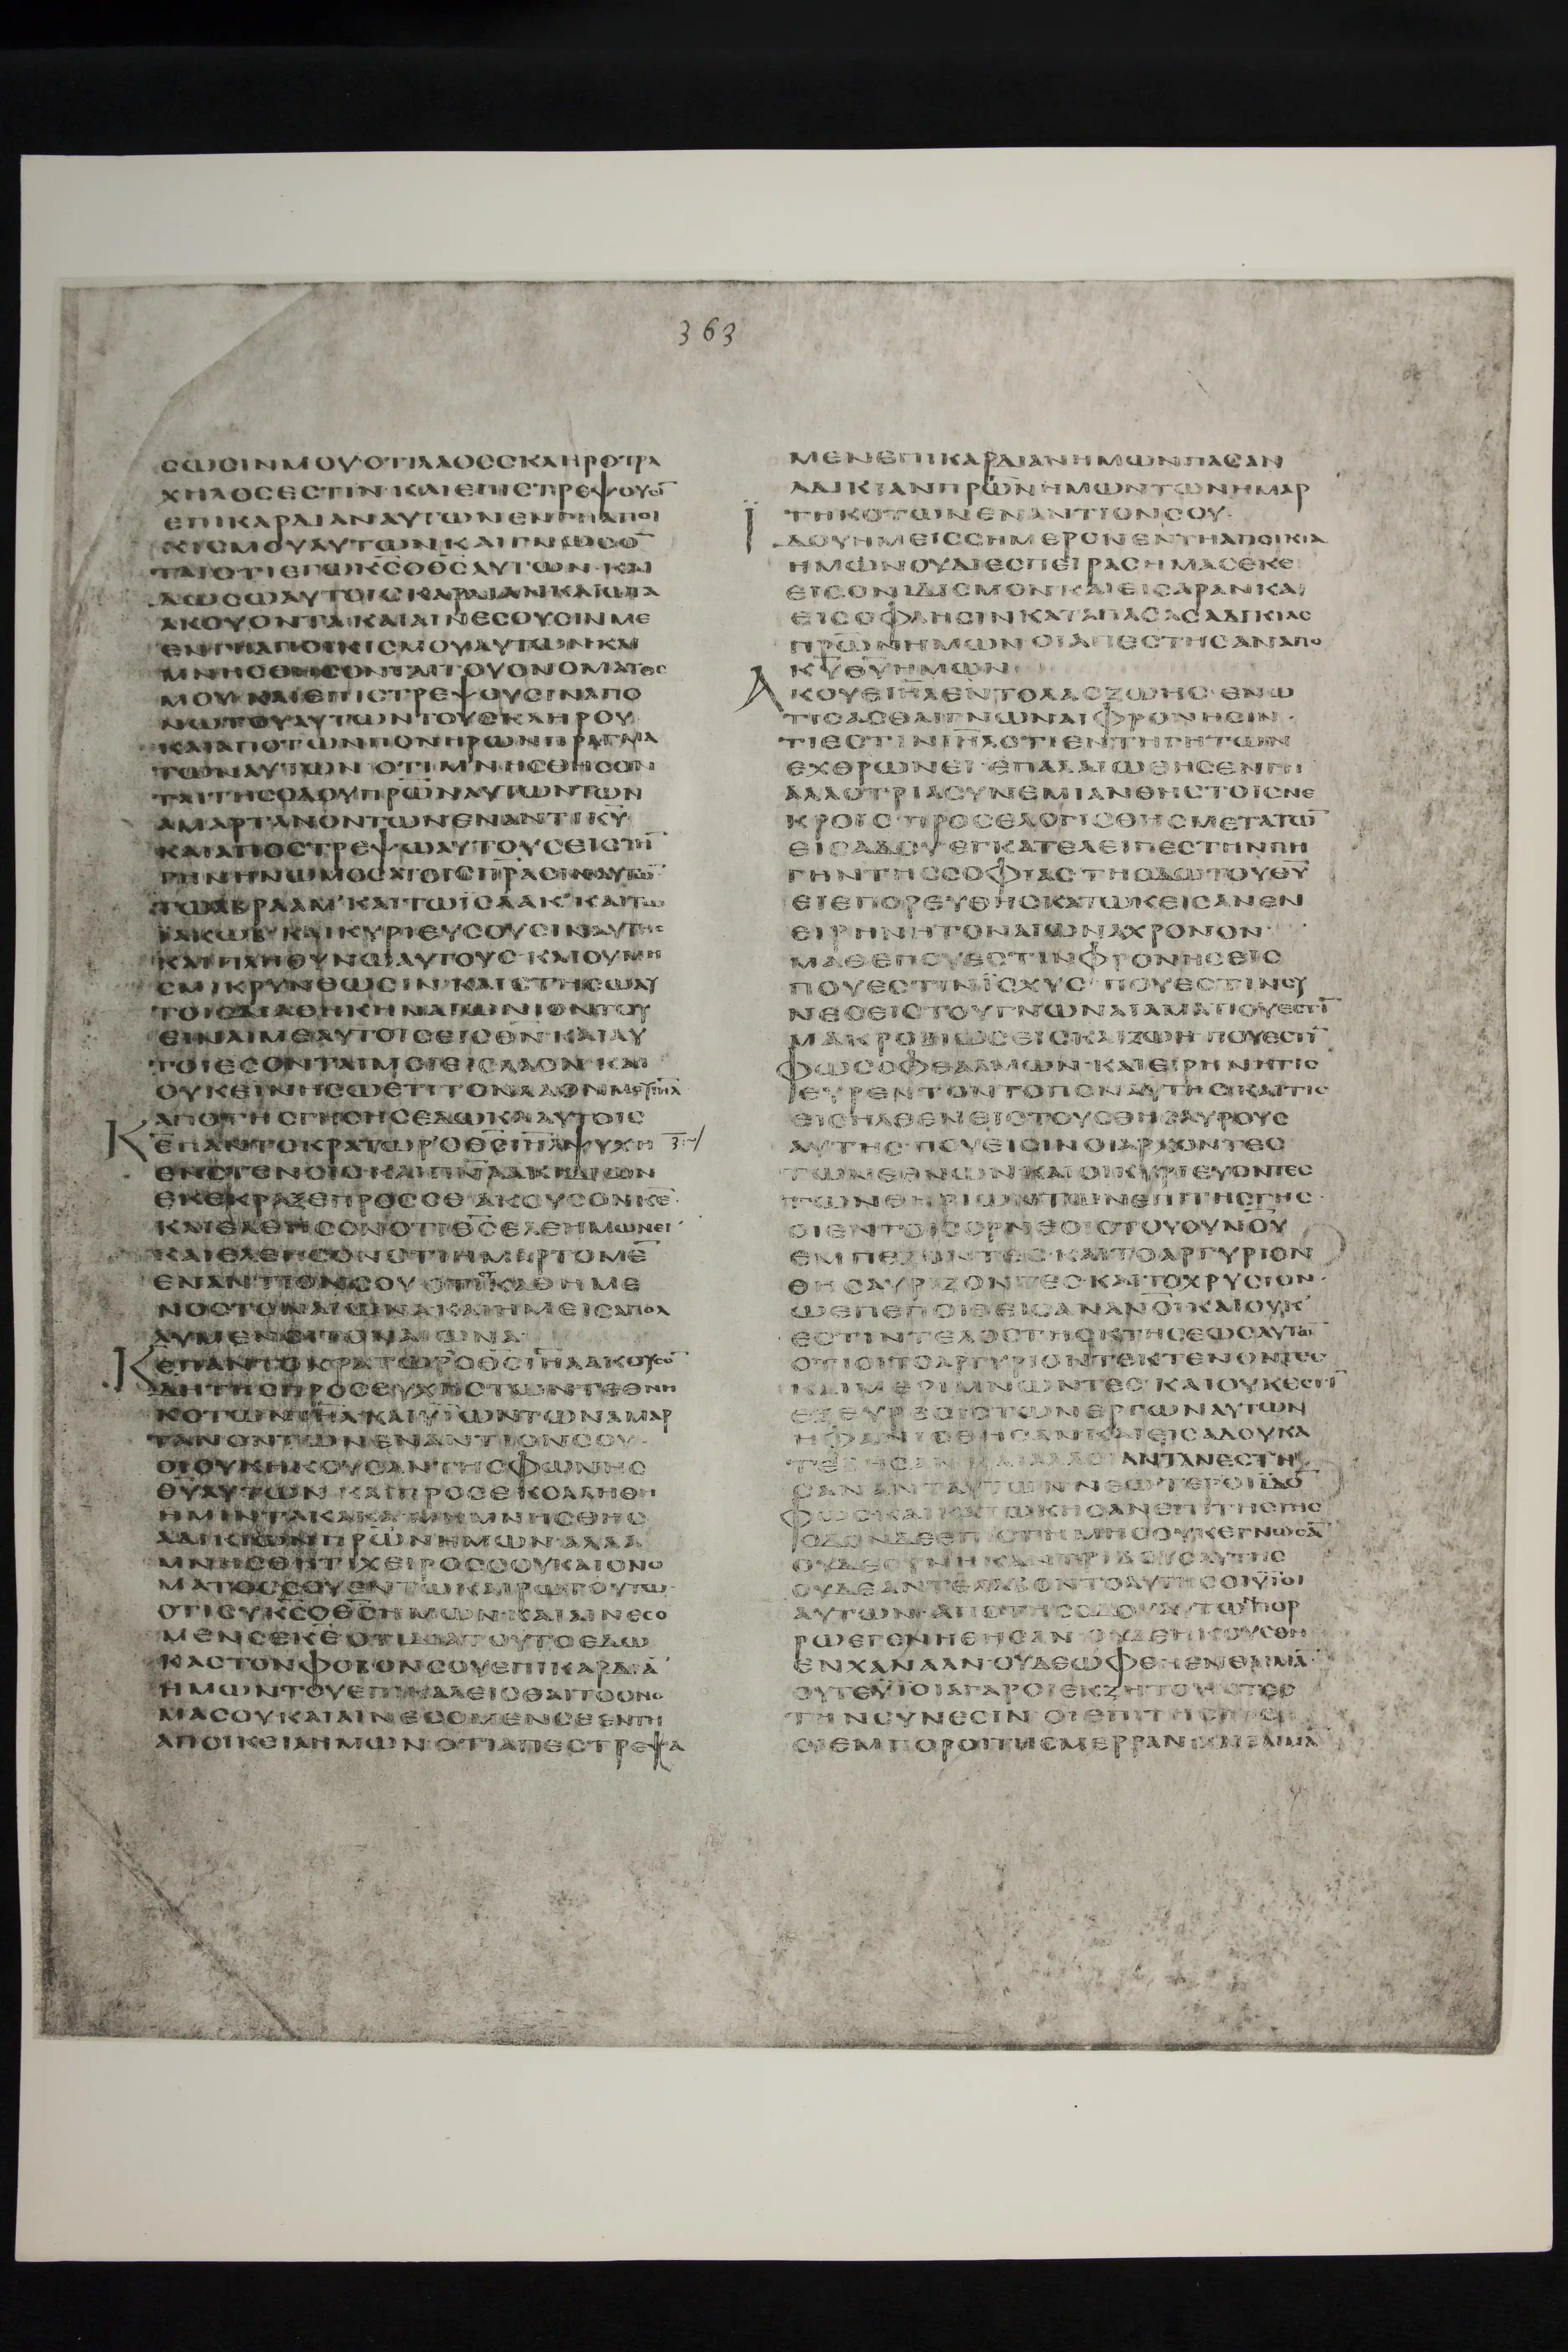 363
ϹωϹΙΝΜΟΥΟΤΙΛΑΟϹϹΚΛΗΡΟΤΡΑ
ΧΗΛΟϹΕϹΤΙΝ·ΚΑΙΕΠΙϹΤΡΕΨΟΥϹΙ̅
ΕΠΙΚΑΡΔΙΑΝΑΥΤωΝΕΝΓΗΑΠΟΙ
ΚΙϹΜΟΥΑΥΤωΝΚΑΙΓΝωϹΟ̅
ΤΑΙΟΤΙΕΓωΚ̅Ϲ̅ΟΘ̅Ϲ̅ΑΥΤωΝ·ΚΑΙ
ΔωϹωΑΥΤΟΙϹΚΑΡΔΙΑΝΚΑΙωΤΑ
ΑΚΟΥΟΝΤΑ·ΚΑΙΑΙΝΕϹΟΥϹΙΝΜΕ
ΕΝΓΗΑΠΟΙΚΙϹΜΟΥΑΥΤωΝΚΑΙ
ΜΝΗϹΘΗϹΟΝΤΑΙΤΟΥΟΝΟΜΑΤΟϹ
ΜΟΥ·ΚΑΙΕΠΙϹΤΡΕΨΟΥϹΙΝΑΠΟ
ΝωΤΟΥΑΥΤωΝΤΟΥϹΚΛΗΡΟΥ
ΚΑΙΑΠΟΤωΝΠΟΝΗΡωΝΠΡΑΓΜΑ
ΤωΝΑΥΤωΝ·ΟΤΙΜΝΗϹΘΗϹΟΝ
ΤΑΙΤΗϹΟΔΟΥΠ̅Ρ̅ω̅Ν̅ΑΥΤωΝΤωΝ
ΑΜΑΡΤΑΝΟΝΤωΝΕΝΑΝΤΙΚ̅Υ̅
ΚΑΙΑΠΟϹΤΡΕΨωΑΥΤΟΥϹΕΙϹΤΗ̅
ΓΗΝΗΝωΜΟϹΑΤΟΙϹΠ̅Ρ̅Α̅ϹΙΝΑΥΤω̅
ΤωΑΒΡΑΑΜ·ΚΑΙΤωΪϹΑΑΚ·ΚΑΙΤω
ΙΑΚωΒ·ΚΑΙΚΥΡΙΕΥϹΟΥϹΙΝΑΥΤΗϹ
ΚΑΙΠΛΗΘΥΝωΑΥΤΟΥϹ·ΚΑΙΟΥΜΗ
ϹΜΙΚΡΥΝΘωϹΙΝ·ΚΑΙϹΤΗϹωΑΥ
ΤΟΙϹΔΙΑΘΗΚΗΝΑΙωΝΙΟΝΤΟΥ
ΕΙΝΑΙΜΕΑΥΤΟΙϹΕΙϹΘ̅Ν̅·ΚΑΙΑΥ
ΤΟΙΕϹΟΝΤΑΙΜΟΙΕΙϹΛΑΟΝ·ΚΑΙ
ΟΥΚΕΙΝΗϹωΕΤΙΤΟΝΛΑΟΝΜΟΥΙ̅Η̅Λ̅
ΑΠΟΤΗϹΓΗϹΗϹΕΔωΚΑΑΥΤΟΙϹ
Κ̅Ε̅ΠΑΝΤΟΚΡΑΤωΡΟΘ̅Ϲ̅Ι̅Η̅Λ̅ΨΥΧΗ
ΕΝϹΤΕΝΟΙϹΚΑΙΠ̅Ν̅Α̅ΑΚΗΔΙωΝ
ΕΚΕΚΡΑΞΕΠΡΟϹϹΕ·ΑΚΟΥϹΟΝΚ̅Ε̅·
ΚΑΙΕΛΕΗϹΟΝΟΤΙΘ̅Ϲ̅ΕΛΕΗΜωΝΕΙ·
ΚΑΙΕΛΕΗϹΟΝΟΤΙΗΜΑΡΤΟΜΕ̅
ΕΝΑΝΤΙΟΝϹΟΥ·ΟΤΙϹΥΚΑΘΗΜΕ
ΝΟϹΤΟΝΑΙωΝΑΚΑΙΗΜΕΙϹΑΠΟΛ
ΛΥΜΕΝΟΙΤΟΝΑΙωΝΑ
Κ̅Ε̅ΠΑΝΤΟΚΡΑΤωΡΟΘ̅Ϲ̅Ι̅Η̅Λ̅ΑΚΟΥϹΟ̅
ΔΗΤΗϹΠΡΟϹΕΥΧΗϹΤωΝΤΕΘΝΗ
ΚΟΤωΝΙ̅Η̅Λ̅·ΚΑΙΥΪωΝΤωΝΑΜΑΡ
ΤΑΝΟΝΤωΝΕΝΑΝΤΙΟΝϹΟΥ·
ΟΙΟΥΚΗΚΟΥϹΑΝΤΗϹΦωΝΗϹ
Θ̅Υ̅ΑΥΤωΝ·ΚΑΙΠΡΟϹΕΚΟΛΛΗΘΗ
ΗΜΙΝΤΑΚΑΚΑ·ΜΗΜΝΗϹΘΗϹ
ΑΔΙΚΙωΝΠ̅Ρ̅ω̅Ν̅ΗΜωΝ·ΑΛΛΑ
ΜΝΗϹΘΗΤΙΧΕΙΡΟϹϹΟΥΚΑΙΟΝΟ
ΜΑΤΟϹϹΟΥΕΝΤωΚΑΙΡωΤΟΥΤω·
ΟΤΙϹΥΚ̅Ϲ̅ΟΘ̅Ϲ̅ΗΜωΝ·ΚΑΙΑΙΝΕϹΟ
ΜΕΝϹΕΚ̅Ε̅ΟΤΙΔΙΑΤΟΥΤΟΕΔω
ΚΑϹΤΟΝΦΟΒΟΝϹΟΥΕΠΙΚΑΡΔΙΑ̅
ΗΜωΝΤΟΥΕΠΙΚΑΛΕΙϹΘΑΙΤΟΟΝΟ
ΜΑϹΟΥΚΑΙΑΙΝΕϹΟΜΕΝϹΕΕΝΤΗ
ΑΠΟΙΚΕΙΑΗΜωΝ·ΟΤΙΑΠΕϹΤΡΕΨΑ
ΜΕΝΕΠΙΚΑΡΔΙΑΝΗΜωΝΠΑϹΑΝ
ΑΔΙΚΙΑΝΠ̅Ρ̅ω̅Ν̅ΗΜωΝΤωΝΗΜΑΡ
ΤΗΚΟΤωΝΕΝΑΝΤΙΟΝϹΟΥ·
ΪΔΟΥΗΜΕΙϹϹΗΜΕΡΟΝΕΝΤΗΑΠΟΙΚΙΑ
ΗΜωΝΟΥΔΙΕϹΠΕΙΡΑϹΗΜΑϹΕΚΕΙ
ΕΙϹΟΝΙΔΙϹΜΟΝΚΑΙΕΙϹΑΡΑΝΚΑΙ
ΕΙϹΟΦΛΗϹΙΝΚΑΤΑΠΑϹΑϹΑΔΙΚΙΑϹ
Π̅Ρ̅ω̅Ν̅ΗΜωΝΟΙΑΠΕϹΤΗϹΑΝΑΠΟ
Κ̅Υ̅Θ̅Υ̅ΗΜωΝ·
ΑΚΟΥΕΙ̅Η̅Λ̅ΕΝΤΟΛΑϹΖωΗϹ·ΕΝω
ΤΙϹΑϹΘΑΙΓΝωΝΑΙΦΡΟΝΗϹΙΝ·
ΤΙΕϹΤΙΝΙ̅Η̅Λ̅ΟΤΙΕΝΓΗΓΗΤωΝ
ΕΧΘΡωΝΕΙ·ΕΠΑΛΑΙωΘΗϹΕΝΓΗ
ΑΛΛΟΤΡΙΑϹΥΝΕΜΙΑΝΘΗϹΤΟΙϹΝΕ
ΚΡΟΙϹ·ΠΡΟϹΕΛΟΓΙϹΘΗϹΜΕΤΑΤω̅
ΕΙϹΑΔΟΥ·ΕΓΚΑΤΕΛΕΙΠΕϹΤΗΝΠΗ
ΓΗΝΤΗϹϹΟΦΙΑϹ·ΤΗΟΔωΤΟΥΘ̅Υ̅
ΕΙΕΠΟΡΕΥΘΗϹΚΑΤωΚΕΙϹΑΝΕΝ
ΕΙΡΗΝΗΤΟΝΑΙωΝΑΧΡΟΝΟΝ·
ΜΑΘΕΠΟΥΕϹΤΙΝΦΡΟΝΗϹΕΙϹ
ΠΟΥΕϹΤΙΝΪϹΧΥϹ·ΠΟΥΕϹΤΙΝϹΥ
ΝΕϹΕΙϹΤΟΥΓΝωΝΑΙΑΜΑΠΟΥΕϹΤΙ̅
ΜΑΚΡΟΒΙωϹΕΙϹΚΑΙΖωΗ·ΠΟΥΕϹΤΙ̅
ΦωϹΟΦΘΑΛΜωΝ·ΚΑΙΕΙΡΗΝΗΤΙϹ
ΕΥΡΕΝΤΟΝΤΟΠΟΝΑΥΤΗϹΚΑΙΤΙϹ
ΕΙϹΗΛΘΕΝΕΙϹΤΟΥϹΘΗϹΑΥΡΟΥϹ
ΑΥΤΗϹ·ΠΟΥΕΙϹΙΝΟΙΑΡΧΟΝΤΕϹ
ΤωΝΕΘΝωΝ·ΚΑΙΟΙΚΥΡΙΕΥΟΝΤΕϹ
ΤωΝΘΗΡΙωΝΤωΝΕΠΙΤΗϹΓΗϹ·
ΟΙΕΝΤΟΙϹΟΡΝΕΟΙϹΤΟΥΟΥΝ̅Ο̅Υ̅
ΕΜΠΕΖΟΝΤΕϹ·ΚΑΙΤΟΑΡΓΥΡΙΟΝ
ΘΗϹΑΥΡΙΖΟΝΤΕϹ·ΚΑΙΤΟΧΡΥϹΙΟΝ·
ωΕΠΕΠΟΙΘΕΙϹΑΝΑΝ̅Ο̅Ι̅ΚΑΙΟΥΚ
ΕϹΤΙΝΤΕΛΟϹΤΗϹΚΤΗϹΕωϹΑΥΤω̅
ΟΤΙΟΙΤΟΑΡΓΥΡΙΟΝΤΕΚΤΕΝΟΝΤΕϹ
ΚΑΙΜΕΡΙΜΝωΝΤΕϹ·ΚΑΙΟΥΚΕϹΤΙ̅
ΕΞΕΥΡΕϹΙϹΤωΝΕΡΓωΝΑΥΤωΝ
ΗΦΑΝΙϹΘΗϹΑΝΚΑΙΕΙϹΑΔΟΥΚΑ
ΤΕΒΗϹΑΝΚΑΙΑΛΛΟΙΑΝΤΑΝΕϹΤΗ
ϹΑΝΑΝΤΑΥΤωΝΝΕωΤΕΡΟΙΪΔΟ̅
ΦωϹ·ΚΑΙΚΑΤωΚΗϹΑΝΕΠΙΤΗϹΓΗϹ
ΟΔΟΝΔΕΕΠΙϹΤΗΜΗϹΟΥΚΕΓΝωϹΑ̅
ΟΥΔΕϹΥΝΗΚΑΝΤΡΙΒΟΥϹΑΥΤΗϹ
ΟΥΔΕΑΝΤΕΛΑΒΟΝΤΟΑΥΤΗϹΟΙΥΪΟΙ
ΑΥΤωΝ·ΑΠΟΤΗϹΟΔΟΥΑΥΤωΝΠΟΡ
ΡωΕΓΕΝΗΘΗϹΑΝ·ΟΥΔΕΗΚΟΥϹΘΗ
ΕΝΧΑΝΑΑΝ·ΟΥΔΕωΦΘΗΕΝΘΑΙΜΑ̅·
ΟΥΤΕΥΪΟΙΑΓΑΡΟΙΕΚΖΗΤΟΥΝΤΕϹ
ΤΗΝϹΥΝΕϹΙΝ·ΟΙΕΠΙΤΗϹΓΗϹ
ΟΙΕΜΠΟΡΟΙΤΗϹΜΕΡΡΑΝΚΑΙΘΑΙΜΑ̅